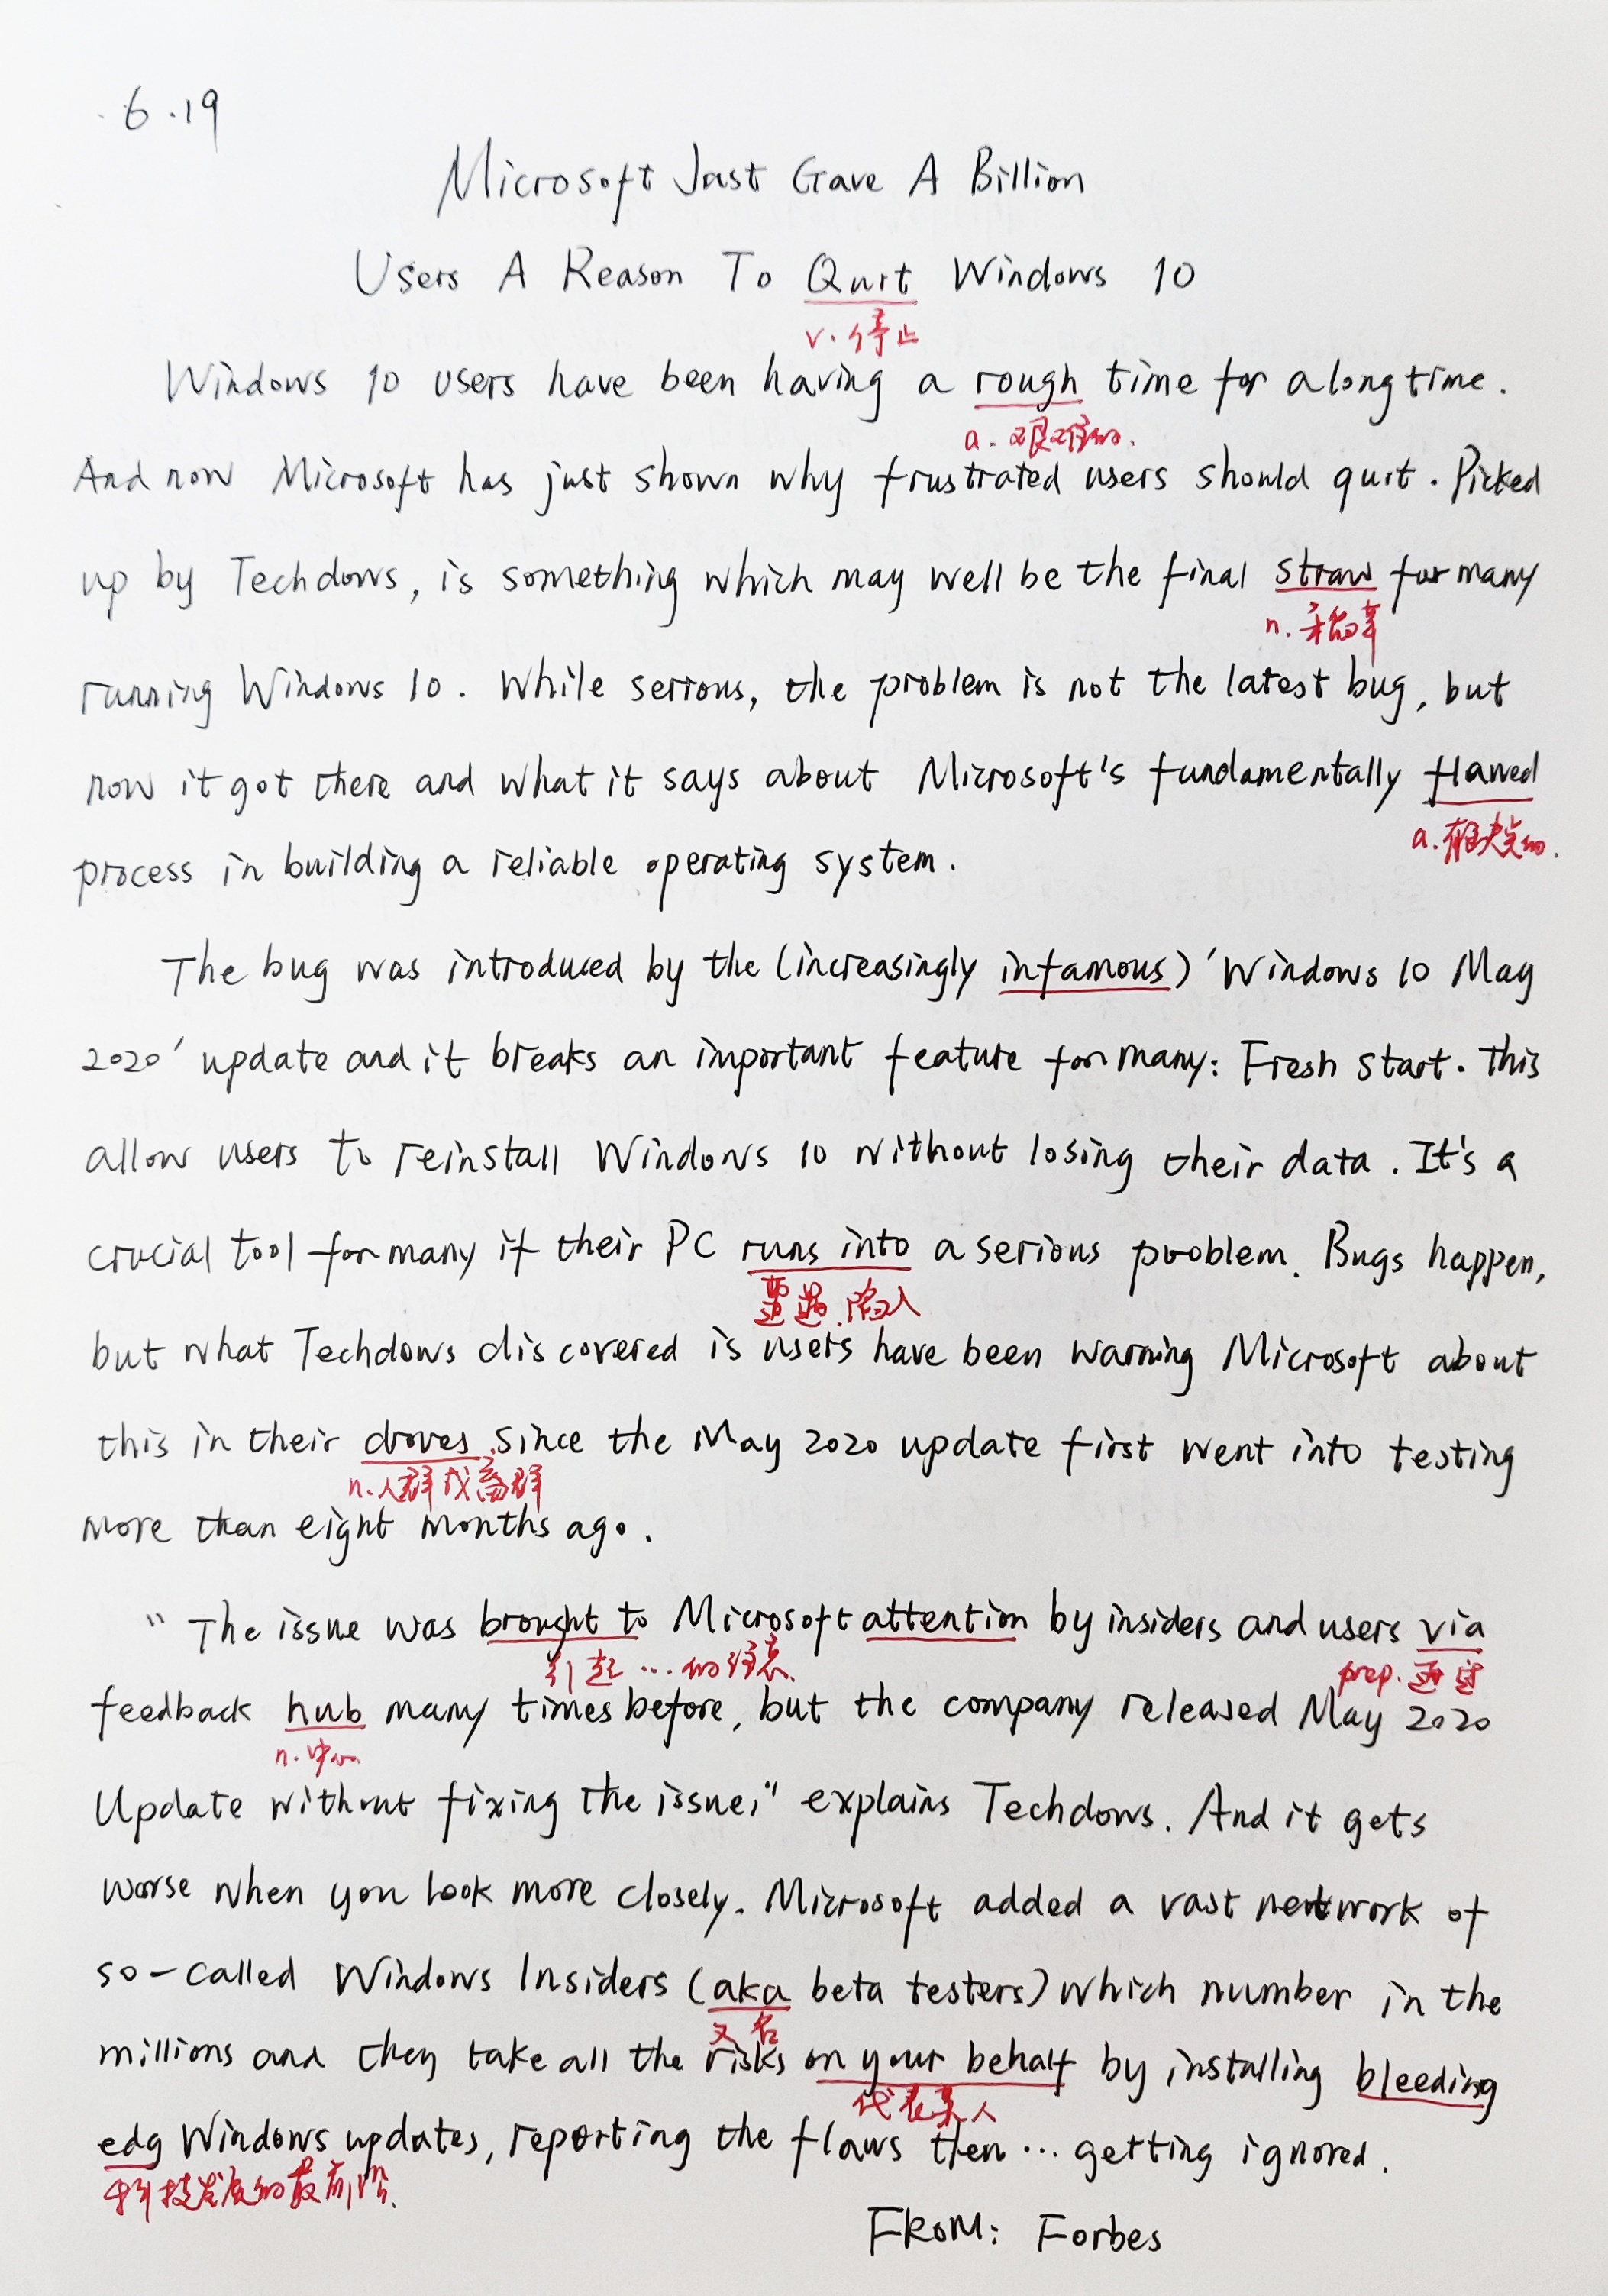 6.19
Microsoft Just Gave A Billion
Users A Reason To Quit Windows 10
v. 停止
Windows 10 users have been having a rough time for a long time.
a. 艰难的.
And now Microsoft has just shown why frustrated users should quit. Picked
up by Techdows, is something which may well be the final straw for many
n. 稻草
running Windows 10. While serious, the problem is not the latest bug, but
how it got there and what it says about Microsoft's fundamentally flawed
a. 有缺点的.
process in building a reliable operating system.
The bug was introduced by the (increasingly infamous) 'Windows 10 May
2020' update and it breaks an important feature for many: Fresh Start. This
allow users to reinstall Windows 10 without losing their data. It's a
crucial tool for many if their PC runs into a serious problem. Bugs happen,
遭遇, 陷入
but what Techdows discovered is users have been warning Microsoft about
this in their droves since the May 2020 update first went into testing
n. 人群或畜群
more than eight months ago.
"The issue was brought to Microsoft attention by insiders and users via
引起…的注意. prep. 通过
feedback hub many times before, but the company released May 2020
n. 中心.
Update without fixing the issue," explains Techdows. And it gets
worse when you look more closely. Microsoft added a vast network of
so-called Windows Insiders (aka beta testers) which number in the
又名
millions and they take all the risks on your behalf by installing bleeding
代表某人
edg Windows updates, reporting the flaws then... getting ignored.
科技发展的最前沿.
FROM: Forbes